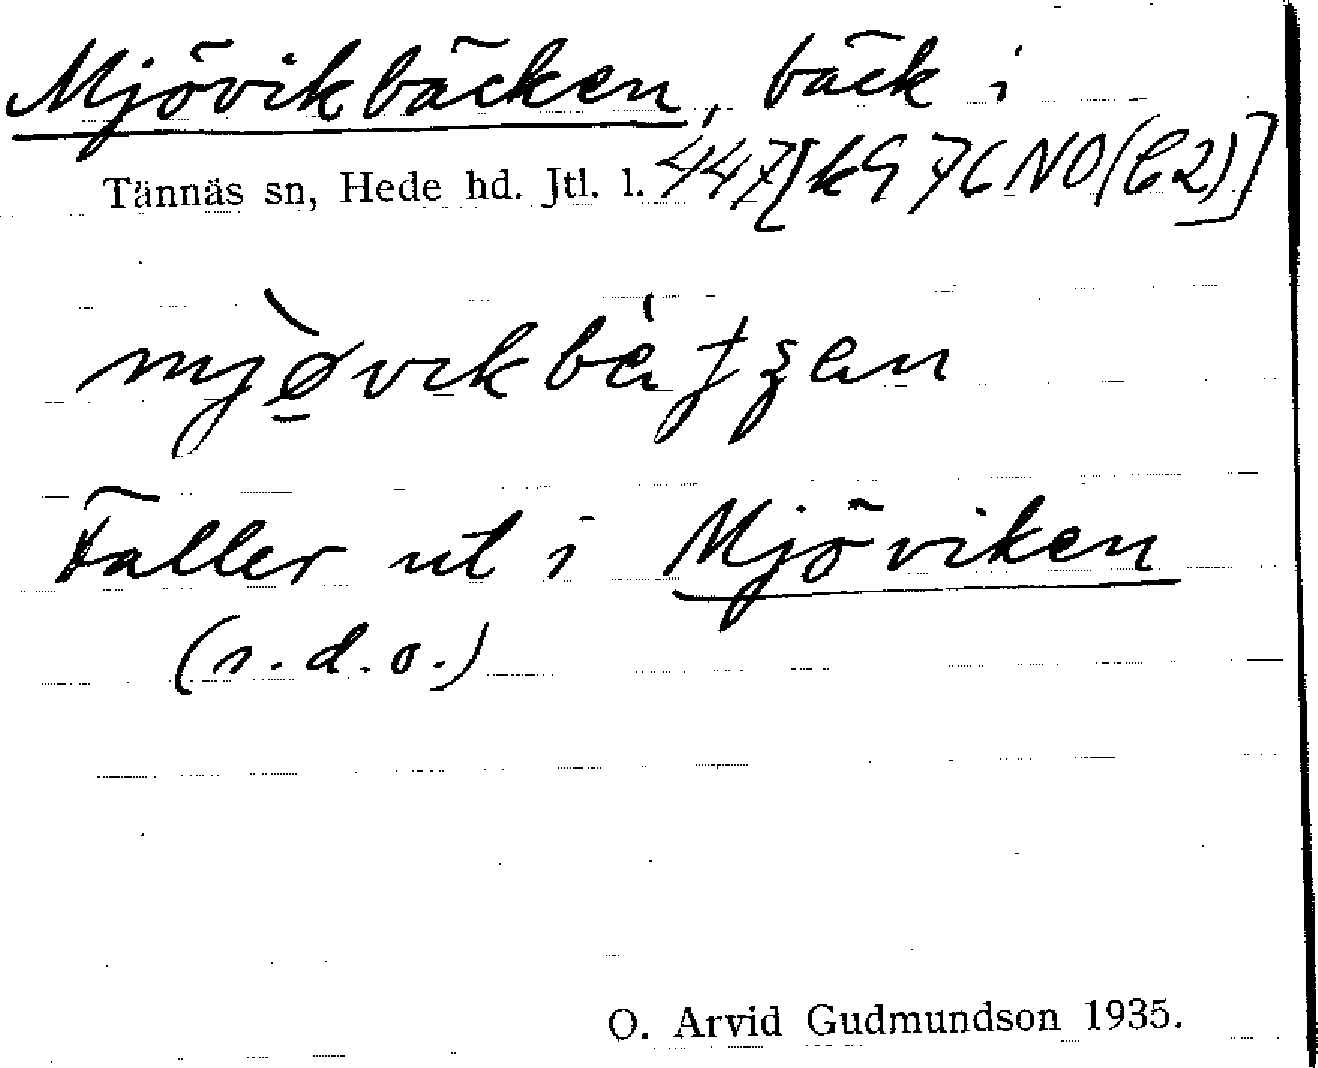 Mjövikbäcken, bäck i
Tännäs sn, Hede hd. Jtl. l. 447[k976NO(C2)]
Faller ut i Mjöviken
(s.d.o.)
O. Arvid Gudmundson 1935.